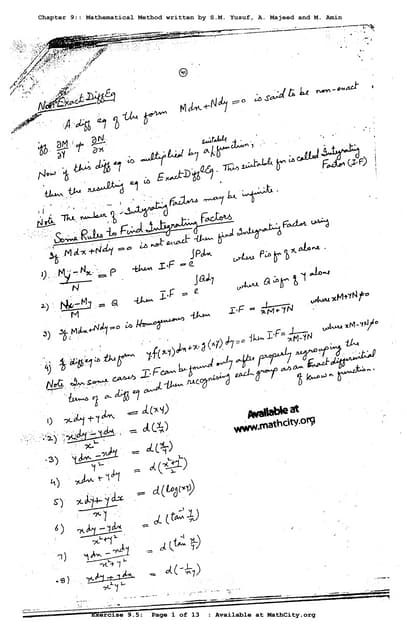 Chapter 9:: Mathematical Method written by S.M. Yusuf, A. Majeed and M. Amin
Non Exact Diff Eq
A diff eq of the form Mdx+Ndy=0 is said to be non-exact
iff ∂M/∂y ≠ ∂N/∂x
Now if this diff eq is multiplied by a suitable function,
then the resulting eq is Exact Diff Eq. This suitable fn is called Integrating Factor (I.F)
Note The number of Integrating Factors may be infinite.
Some Rules to Find Integrating Factors
If Mdx+Ndy=0 is not exact then find Integrating Factor using
1) My-Nx/N = P then I.F = e^∫Pdx where P is fn of x alone.
2) Nx-My/M = Q then I.F = e^∫Qdy where Q is fn of y alone
3) If Mdx+Ndy=0 is Homogeneous then I.F = 1/xM+yN where xM+yN≠0
4) If diff eq is the form yf(xy)dx+xg(xy)dy=0 then I.F=1/xM-yN where xM-yN≠0
Note In some cases I.F can be found only after properly regrouping the
terms of a diff eq and then recognising each group as an Exact differential
of known function.
1) xdy+ydx = d(xy)
Available at
www.mathcity.org
2) xdy-ydx/x² = d(y/x)
3) ydx-xdy/y² = d(x/y)
4) xdx+ydy = d(x²+y²/2)
5) xdy+ydx/xy = d(log(xy))
6) xdy-ydx/x²+y² = d(tan⁻¹ y/x)
7) ydx-xdy/x²+y² = d(tan⁻¹ x/y)
8) xdy+ydx/x²y² = d(-1/xy)
Exercise 9.5: Page 1 of 13 : Available at MathCity.org